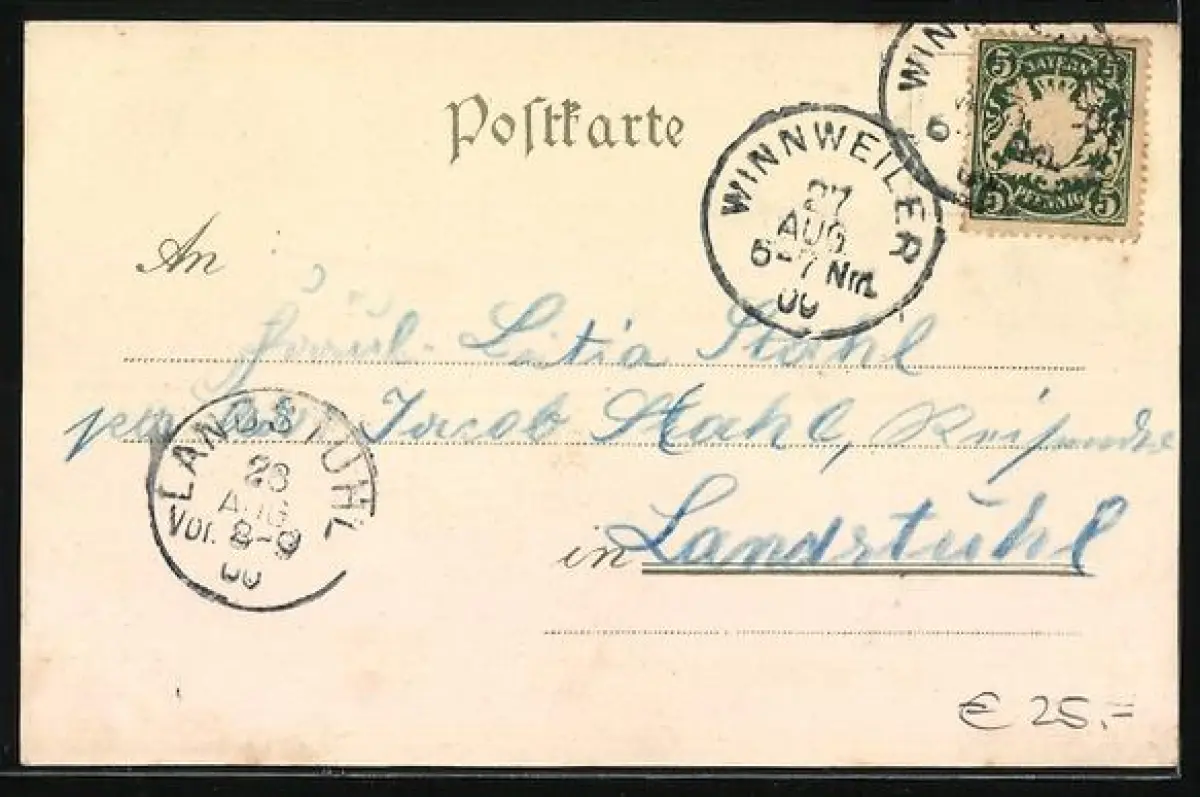 Postkarte
WINNWEILER
27
AUG
6-7 Nm.
00
WINN
6
5 BAYERN 5
5 PFENNIG 5
An
Fräul. Stahl
Jacob Stahl,
in Landstuhl
LANDSTUHL
28
AUG
Vor. 8-9
00
€ 25.-